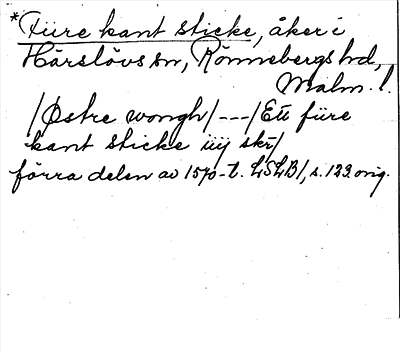 *Füre kant sticke, åker i
Härslövs sn, Rönnebergs hd,
Malm. l.
/Østre wongh/---/Ett füre
kant sticke iiij skr/
förra delen av 1570-t. LSLB1, s. 123 orig.